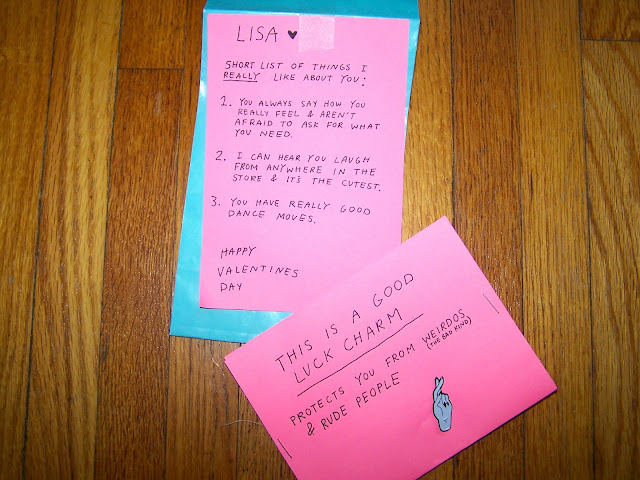 LISA ♥
SHORT LIST OF THINGS I
REALLY LIKE ABOUT YOU:
1. YOU ALWAYS SAY HOW YOU
REALLY FEEL & AREN'T
AFRAID TO ASK FOR WHAT
YOU NEED.
2. I CAN HEAR YOU LAUGH
FROM ANYWHERE IN THE
STORE & IT'S THE CUTEST.
3. YOU HAVE REALLY GOOD
DANCE MOVES.
HAPPY
VALENTINES
DAY
THIS IS A GOOD
LUCK CHARM
PROTECTS YOU FROM WEIRDOS
(THE BAD KIND)
& RUDE PEOPLE